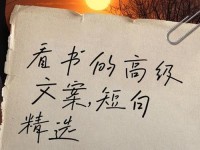 看书的高级
文案,短句
精选